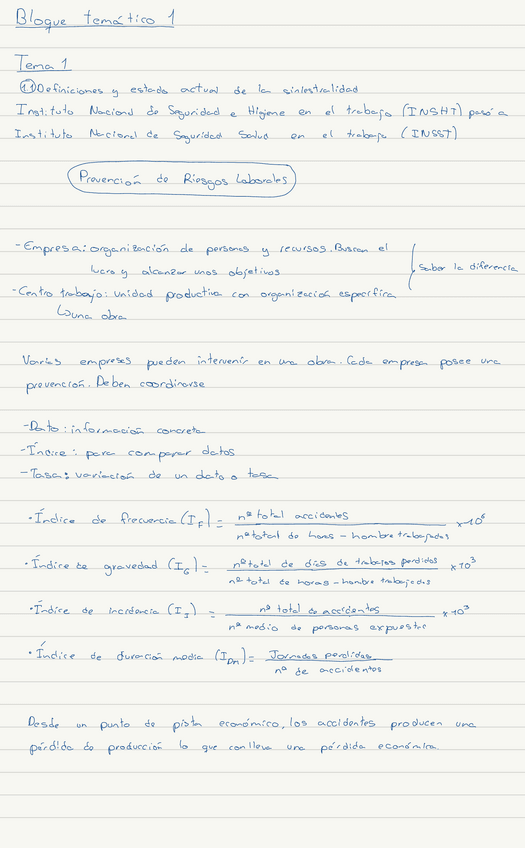 Bloque temático 1
Tema 1
1.1 Definiciones y estado actual de la siniestralidad
Instituto Nacional de Seguridad e Higiene en el trabajo (INSHT) pasó a
Instituto Nacional de Seguridad Salud en el trabajo (INSST)
Prevención de Riesgos Laborales
- Empresa: organización de personas y recursos. Buscan el
lucro y alcanzar unos objetivos
Saber la diferencia
- Centro trabajo: unidad productiva con organización específica
↳ una obra
Varias empresas pueden intervenir en una obra. Cada empresa posee una
prevención. Deben coordinarse
- Dato: información concreta
- Índice: para comparar datos
- Tasa: variación de un dato o tasa
· Índice de frecuencia (I_F) = nº total accidentes / nº total de horas - hombre trabajadas x10⁶
· Índice de gravedad (I_G) = nº total de días de trabajos perdidos / nº total de horas - hombre trabajadas x10³
· Índice de incidencia (I_I) = nº total de accidentes / nº medio de personas expuestas x10³
· Índice de duración media (I_DM) = Jornadas perdidas / nº de accidentes
Desde un punto de pista económico, los accidentes producen una
pérdida de producción lo que conlleva una pérdida económica.